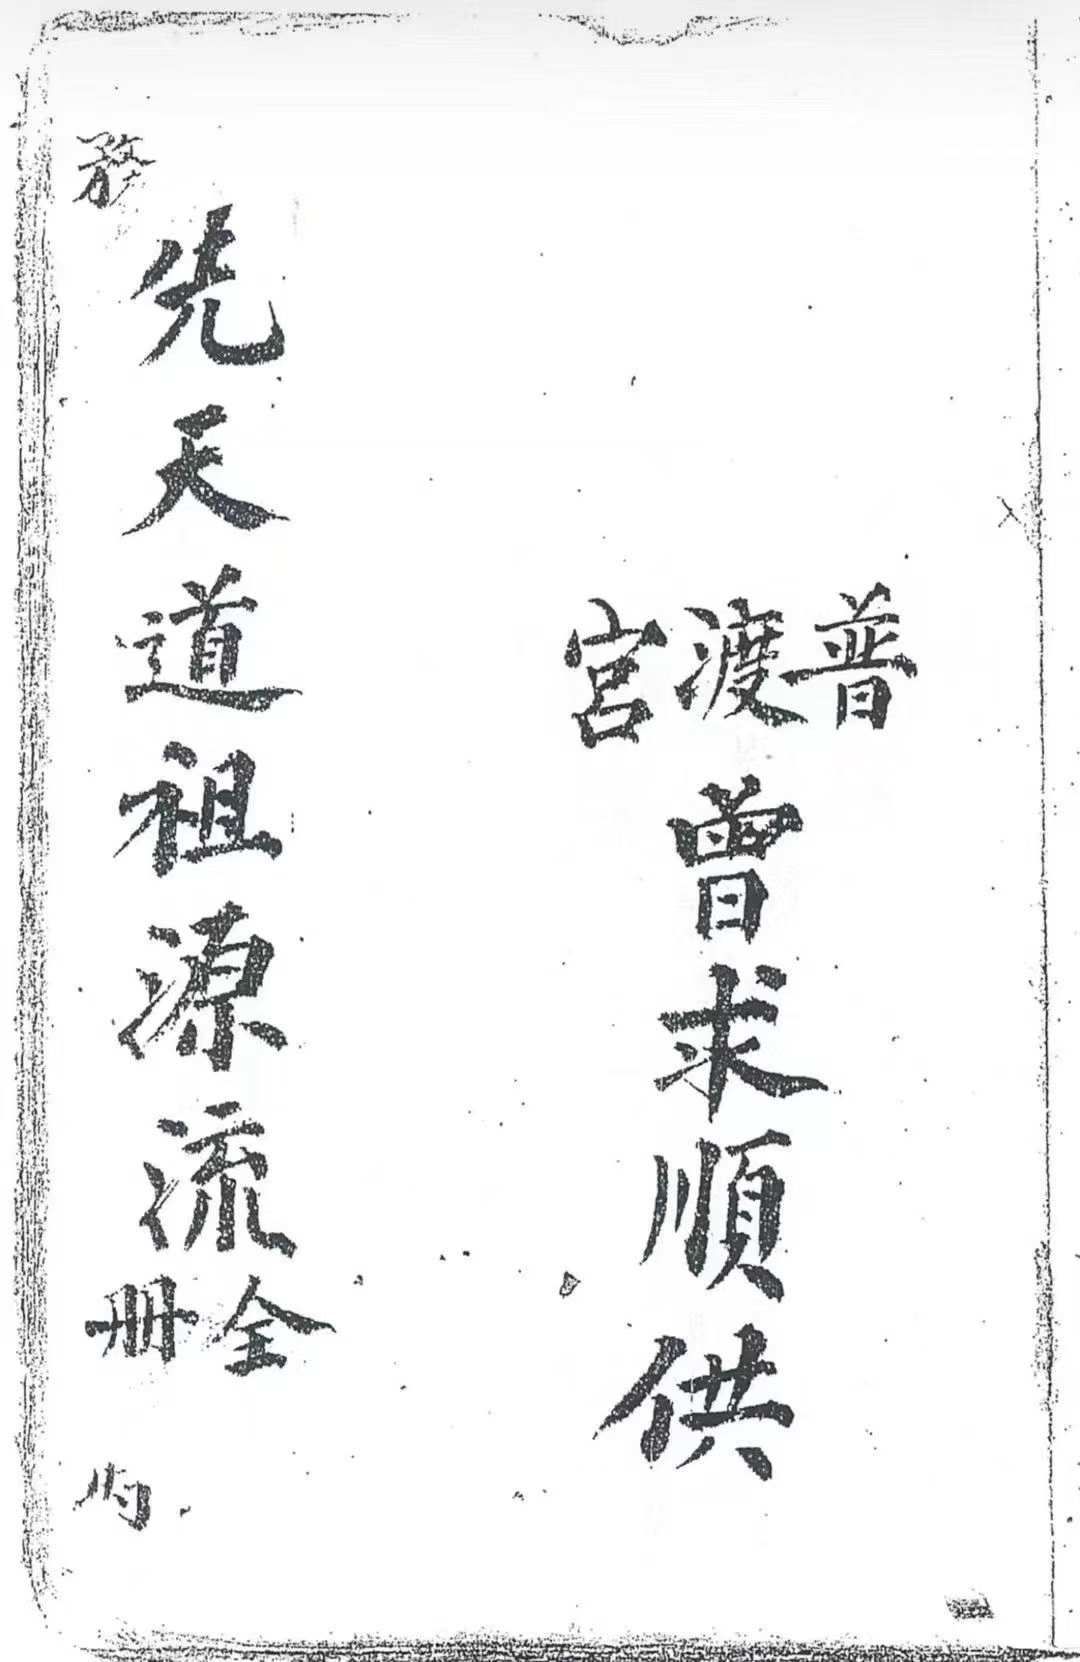 普渡宮
曾求順供
先天道祖源流
全册
務